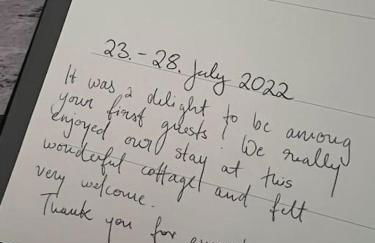 23. - 28. July 2022
It was a delight to be among
your first guests! We really
enjoyed our stay at this
wonderful cottage and felt
very welcome.
Thank you for